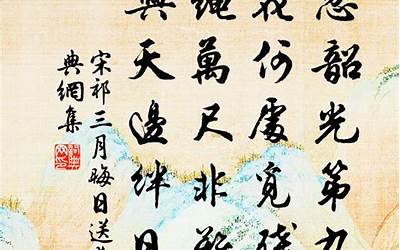 韶光第九
我何處覓殘
繩萬尺非難
與天邊絆日
宋祁三月晦日送
典網集